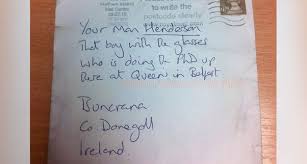 to write the
postcode clearly
Your Man Henderson
That boy with the glasses
who is doing the PhD up
here at Queen's in Belfast
Buncrana
Co. Donegal
Ireland.